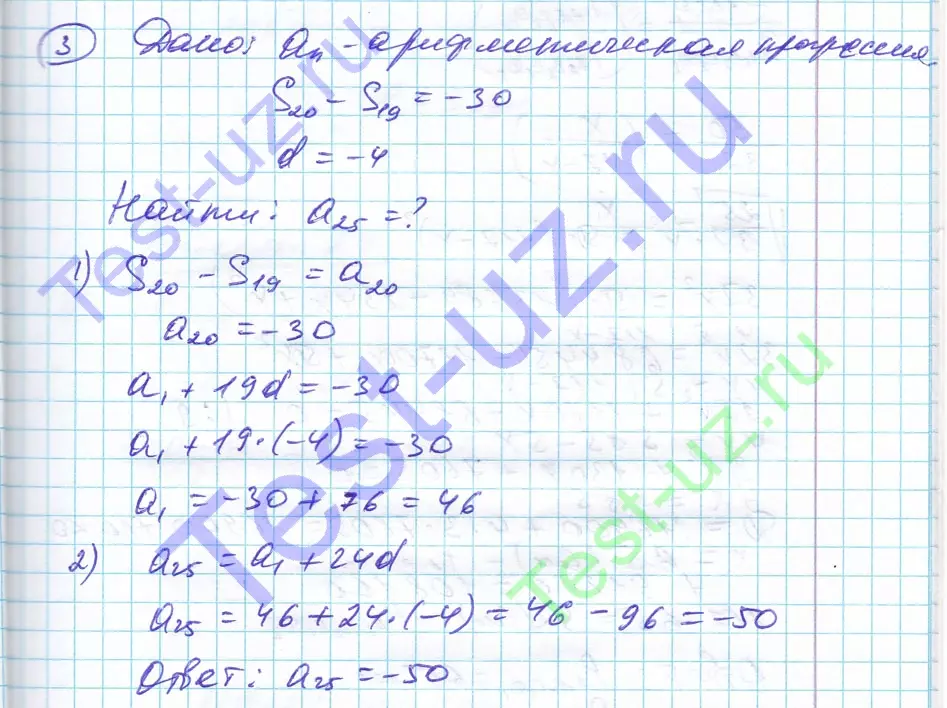 3 Дано: aₙ - арифметическая прогрессия.
S₂₀ - S₁₉ = -30
d = -4
Найти: a₂₅ = ?
1) S₂₀ - S₁₉ = a₂₀
a₂₀ = -30
a₁ + 19d = -30
a₁ + 19·(-4) = -30
a₁ = -30 + 76 = 46
2) a₂₅ = a₁ + 24d
a₂₅ = 46 + 24·(-4) = 46 - 96 = -50
Ответ: a₂₅ = -50
Test-uz.ru
Test-uz.ru
Test-uz.ru